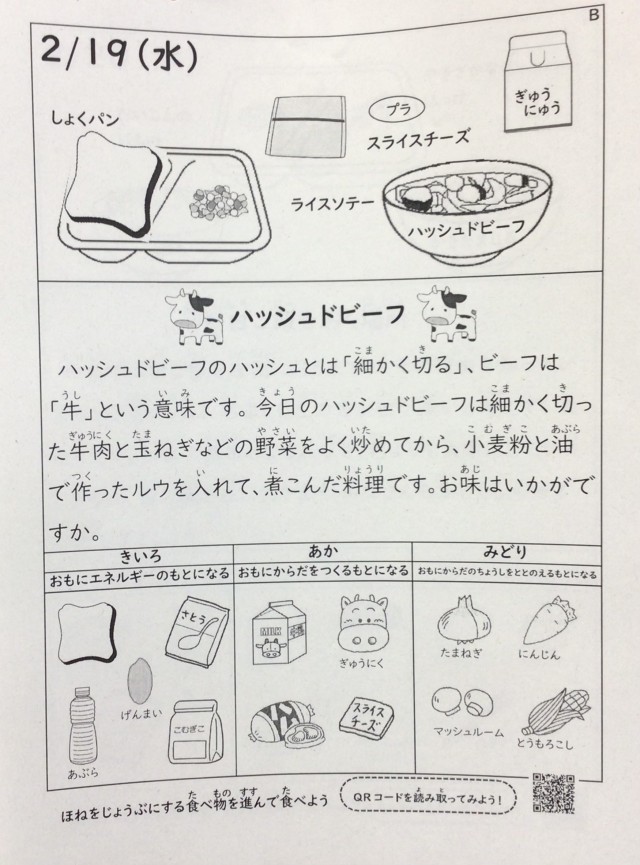 B
2/19(水)
ぎゅう
にゅう
しょくパン
プラ
スライスチーズ
ライスソテー
ハッシュドビーフ
ハッシュドビーフ
ハッシュドビーフのハッシュとは「細かく切る」、ビーフは
「牛」という意味です。今日のハッシュドビーフは細かく切っ
た牛肉と玉ねぎなどの野菜をよく炒めてから、小麦粉と油
で作ったルウを入れて、煮こんだ料理です。お味はいかがで
すか。
きいろ
おもにエネルギーのもとになる
さとう
げんまい
こむぎこ
あぶら
あか
おもにからだをつくるもとになる
MILK
ぎゅうにく
スライス
チーズ
みどり
おもにからだのちょうしをととのえるもとになる
たまねぎ
にんじん
マッシュルーム
とうもろこし
ほねをじょうぶにする食べ物を進んで食べよう
QRコードを読み取ってみよう!